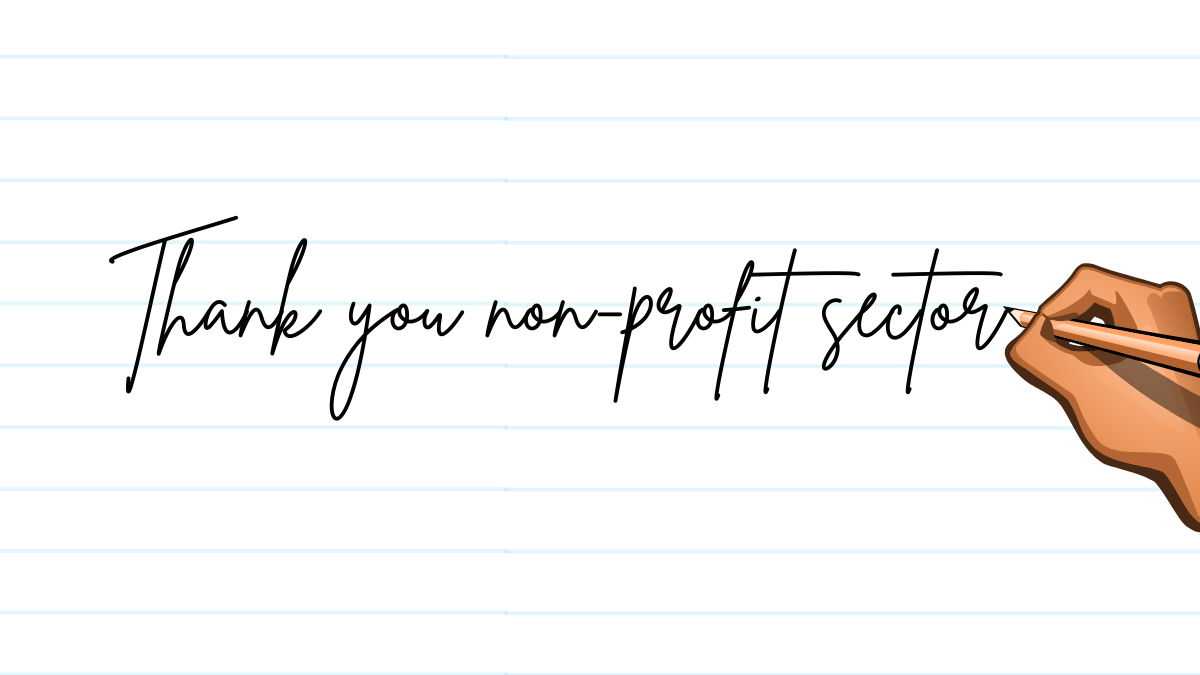 Thank you non-profit sector